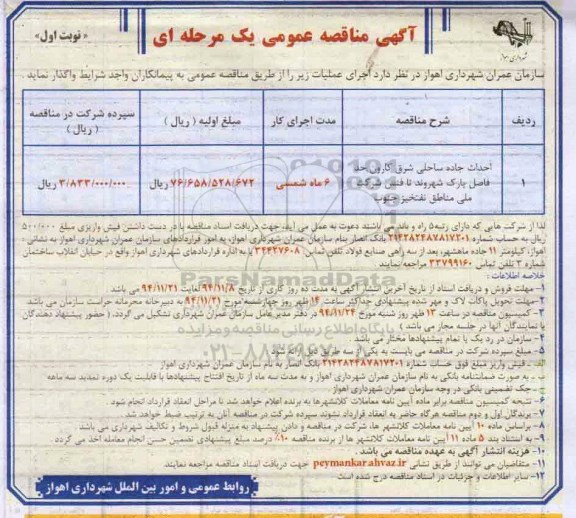 آگهی مناقصه عمومی یک مرحله ای
« نوبت اول »
شهرداری اهواز
سازمان عمران شهرداری اهواز در نظر دارد اجرای عملیات زیر را از طریق مناقصه عمومی به پیمانکاران واجد شرایط واگذار نماید
ردیف
شرح مناقصه
مدت اجرای کار
مبلغ اولیه ( ریال )
سپرده شرکت در مناقصه ( ریال )
۱
احداث جاده ساحلی شرق کارون حد
فاصل پارک شهروند تا فنس شرکت
ملی مناطق نفتخیز جنوب
۶ ماه شمسی
۷۶/۶۵۸/۵۲۸/۶۷۲ ریال
۳/۸۳۳/۰۰۰/۰۰۰ ریال
لذا از شرکت هایی که دارای رتبه ۵ راه و باند می باشند دعوت به عمل می آید، جهت دریافت اسناد مناقصه با در دست داشتن فیش واریزی مبلغ ۵۰۰/۰۰۰
ریال به حساب شماره ۲۱۴۲۸۲۴۸۷۸۱۷۲۰۱ بانک انصار بنام سازمان عمران شهرداری اهواز، به امور قراردادهای سازمان عمران شهرداری اهواز به نشانی :
اهواز، کیلومتر ۱۱ جاده ماهشهر، بعد از سه راهی صنایع فولاد تلفن تماس ۳۴۴۲۷۶۰۸ یا به اداره قراردادهای شهرداری اهواز واقع در خیابان انقلاب ساختمان
شماره ۲ تلفن تماس ۳۳۷۹۹۱۶۰ مراجعه نمایند
خلاصه اطلاعات :
۱- مهلت فروش و دریافت اسناد از تاریخ آخرین انتشار آگهی به مدت ده روز کاری از تاریخ ۹۴/۱۱/۸ لغایت ۹۴/۱۱/۲۱ می باشد
۲- مهلت تحویل پاکات لاک و مهر شده پیشنهادی حداکثر ساعت ۱۴ ظهر روز چهارشنبه مورخ ۹۴/۱۱/۲۱ به دبیرخانه محرمانه حراست سازمان می باشد
۳- کمیسیون مناقصه در ساعت ۱۳ ظهر روز شنبه مورخ ۹۴/۱۱/۲۴ در دفتر مدیر عامل سازمان عمران شهرداری تشکیل می گردد. ( حضور پیشنهاد دهندگان
یا نمایندگان آنها در جلسه مجاز می باشد )
۴- سازمان در رد یک یا تمام پیشنهادها مختار می باشد
۵- مبلغ سپرده شرکت در مناقصه می بایست به یکی از سه طریق ذیل ارائه شود
الف- فیش واریز مبلغ فوق حساب شماره ۲۱۴۲۸۲۴۸۷۸۱۷۲۰۱ بانک انصار به نام سازمان عمران شهرداری اهواز
ب- به صورت ضمانتنامه بانکی به نام سازمان عمران شهرداری اهواز و به مدت سه ماه از تاریخ افتتاح پیشنهادها با قابلیت یک دوره تمدید سه ماهه
ج- چک تضمینی بانکی در وجه سازمان عمران شهرداری اهواز
۶- نتیجه کمیسیون مناقصه برابر ماده آیین نامه معاملات کلانشهرها به برنده اعلام خواهد شد تا مراحل انعقاد قرارداد انجام شود
۷- برندگان اول و دوم مناقصه هرگاه حاضر به انعقاد قرارداد نشوند سپرده شرکت در مناقصه آنان به ترتیب ضبط خواهد شد
۸- براساس ماده ۱۰ آیین نامه معاملات کلانشهر ها، شرکت در مناقصه و دادن پیشنهاد به منزله قبول شروط و تکالیف شهرداری می باشد
۹- به استناد بند ۵ ماده ۱۱ آیین نامه معاملات کلانشهرها از برنده مناقصه ۱۰٪ درصد مبلغ پیشنهادی تضمین حسن انجام معامله اخذ می گردد
۱۰- هزینه انتشار آگهی به عهده مناقصه می باشد .
۱۱- متقاضیان می توانند از طریق نشانی peymankar.ahvaz.ir جهت دریافت اسناد مناقصه مراجعه نمایند
۱۲- سایر اطلاعات و جزئیات در اسناد مناقصه درج شده است
روابط عمومی و امور بین الملل شهرداری اهواز
ParsNamadData
پایگاه اطلاع رسانی مناقصه و مزایده